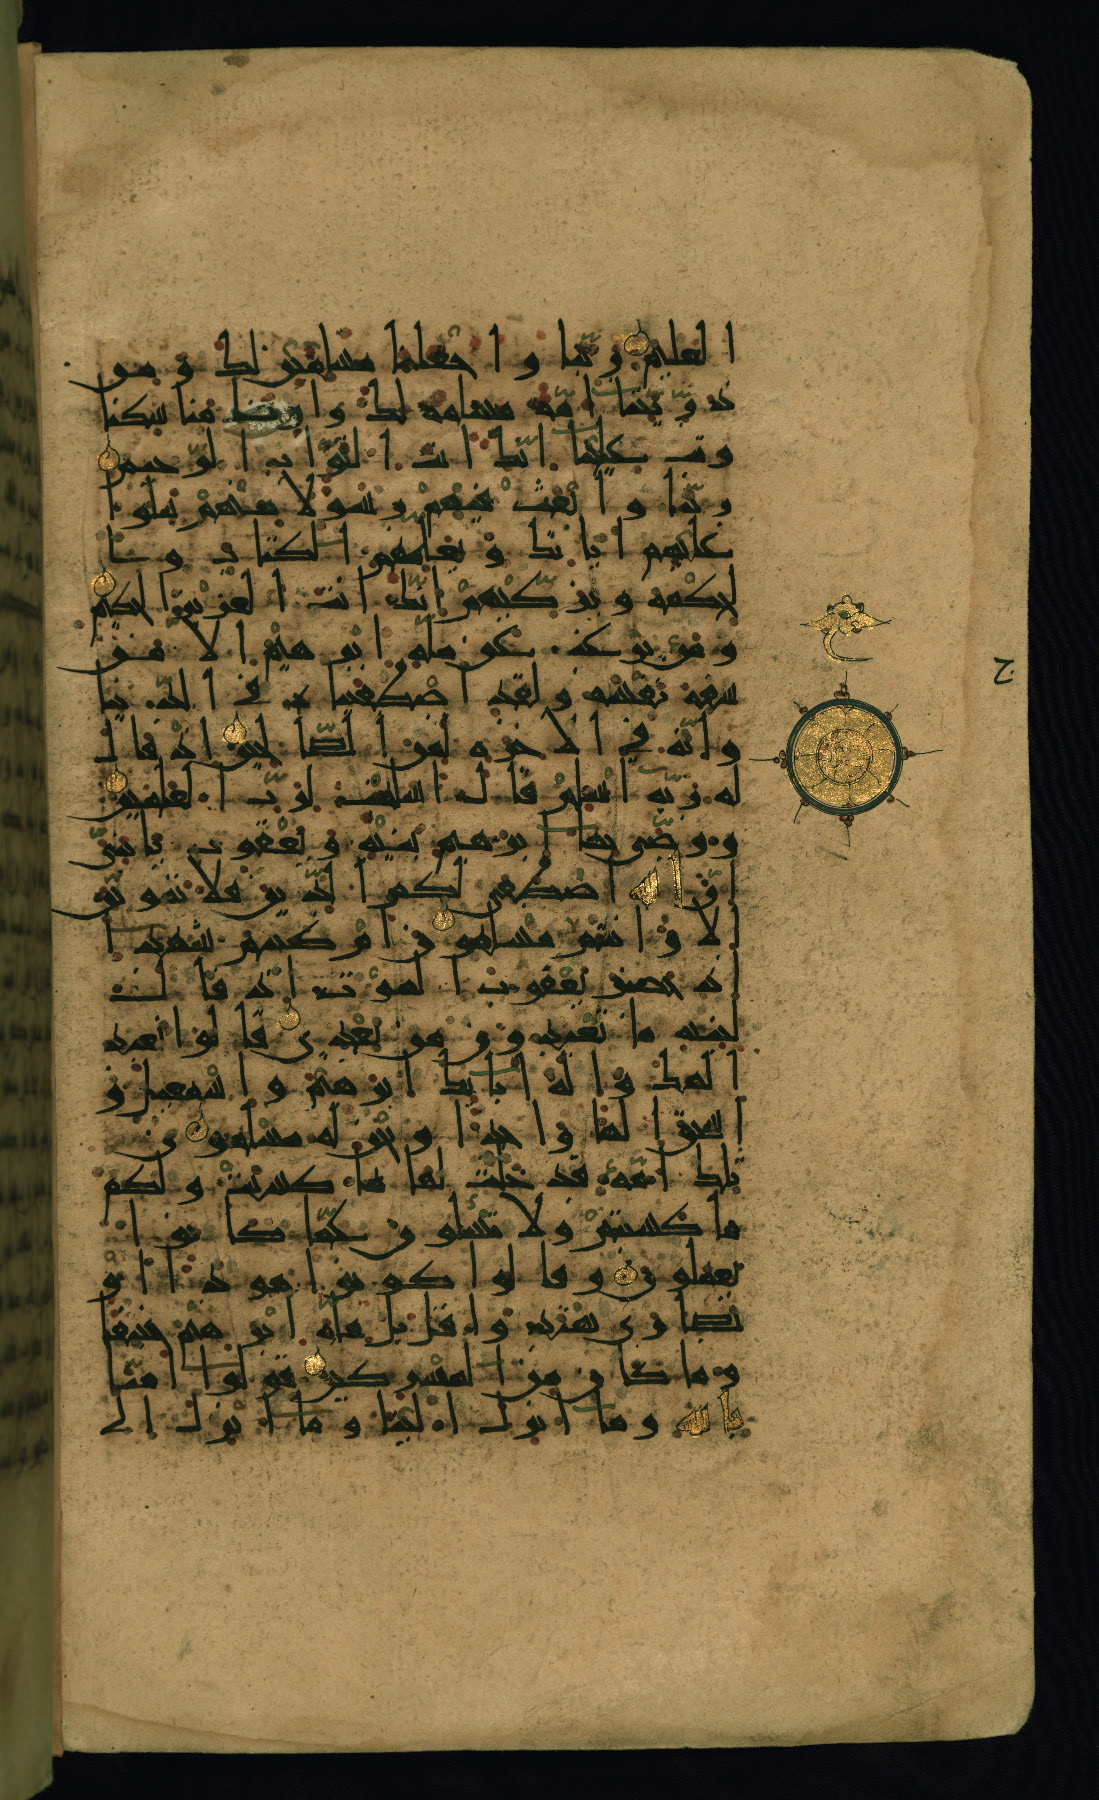 العليم ربنا واجعلنا مسلمين لك ومن
ذريتنا امة مسلمة لك وارنا مناسكنا
وتب علينا انك انت التواب الرحيم
ربنا وابعث فيهم رسولا منهم يتلوا
عليهم اياتك ويعلمهم الكتاب و ا
لحكمة ويزكيهم انك انت العزيز الحكيم
ومن يرغب عن ملة ابرهيم الا من
سفه نفسه ولقد اصطفيناه في الدنيا
وانه في الاخرة لمن الصالحين اذ قال
له ربه اسلم قال اسلمت لرب العلمين
ووصى بها ابرهيم بنيه ويعقوب يابني
ان الله اصطفى لكم الدين فلا تموتن
الا وانتم مسلمون ام كنتم شهدا
اذ حضر يعقوب الموت اذ قال
لبنيه ما تعبدون من بعدي قالوا نعبد
الهك واله ابايك ابرهيم واسمعيل و
اسحق الها واحدا ونحن له مسلمون
تلك امة قد خلت لها ما كسبت ولكم
ما كسبتم ولا تسلون عما كانوا
يعملون وقالوا كونوا هودا او
نصارى تهتدوا قل بل ملة ابرهيم حنيفا
وما كان من المشركين قولوا امنا
بالله وما انزل الينا وما انزل الى
ج